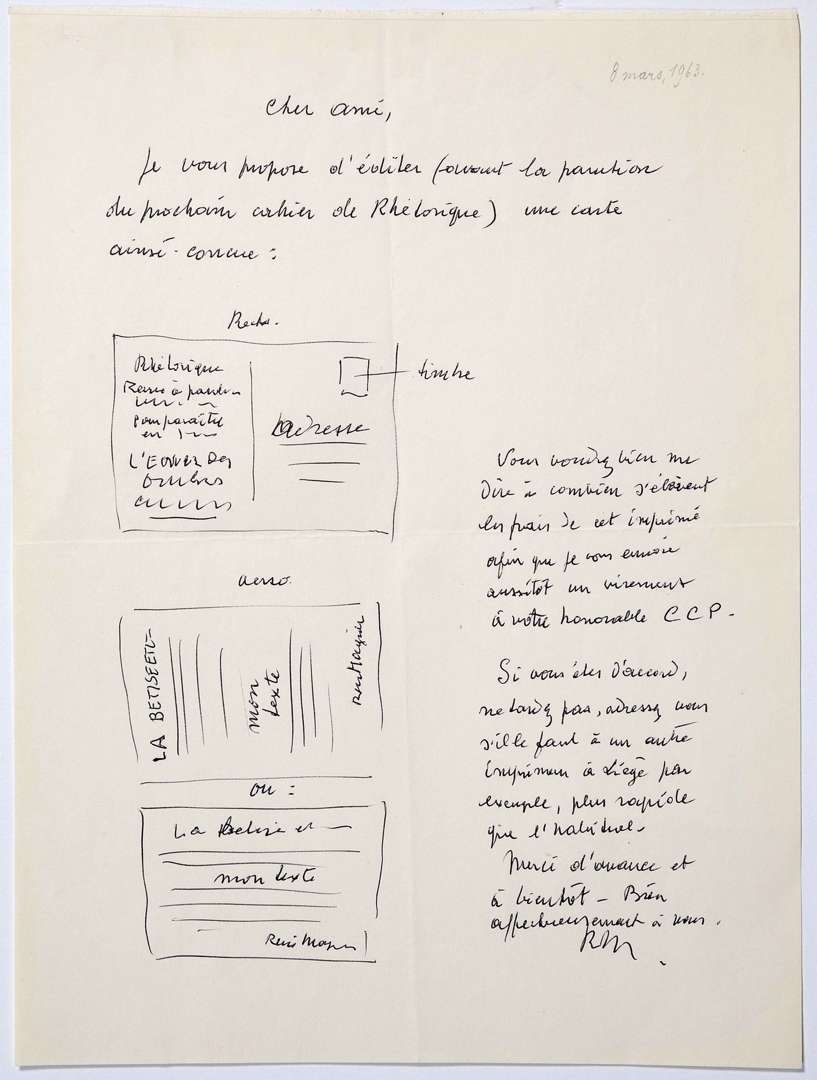 8 mars, 1963.
Cher ami,
Je vous propose d'éditer (avant la parution
du prochain cahier de Rhétorique) une carte
ainsi conçue :
Recto.
Rhétorique
Revue à
pour paraître
en
L'Envers des
ombres
Adresse
timbre
verso.
LA BETISE ET
mon
texte
René Magritte
ou :
La Betise et
mon texte
René Magritte
Vous voudrez bien me
dire à combien s'élèvent
les frais de cet imprimé
afin que je vous envoie
aussitôt un virement
à votre honorable C C P -
Si vous êtes d'accord,
ne tardez pas, adressez vous
s'il le faut à un autre
imprimeur à Liège par
exemple, plus rapide
que l'habituel.
Merci d'avance et
à bientôt - Bien
affectueusement à vous.
RM